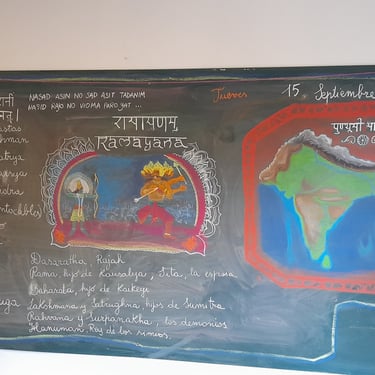 NASAD ASIN NO SAD ASIT TADANIM
NASID RAJO NO VIOMA PARO YAT ...
Jueves 15. Septiembre
रामायणम्
Ramayana
Dasaratha, Rajah
Rama, hijo de Kousalya, Sita, la esposa
Baharata, hijo de Kaikeyi
Lakshmana y Satrughna, hijos de Sumitra
Rahvana y Surpanakha, los demonios
Hanuman, Rey de los simios.